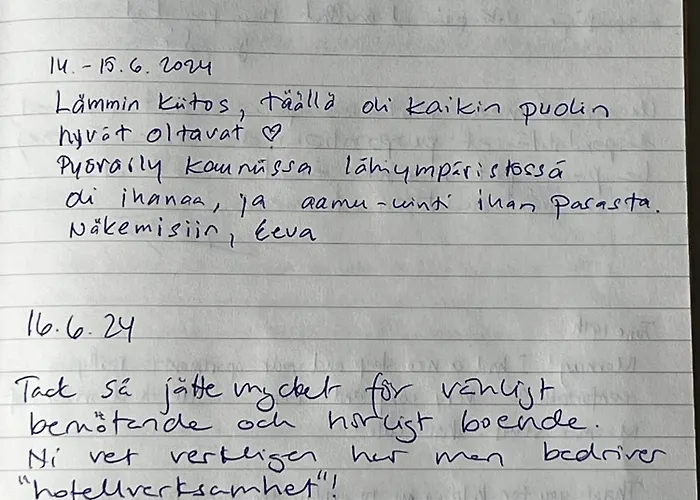 14.-15.6.2024
Lämmin kiitos, täällä oli kaikin puolin
hyvät oltavat ♡
Pyöräily kauniissa lähiympäristössä
oli ihanaa, ja aamu-uinti ihan parasta.
Näkemisiin, Eeva
16.6.24
Tack så jätte mycket för vänligt
bemötande och härligt boende.
Ni vet verkligen hur man bedriver
"hotellverksamhet"!